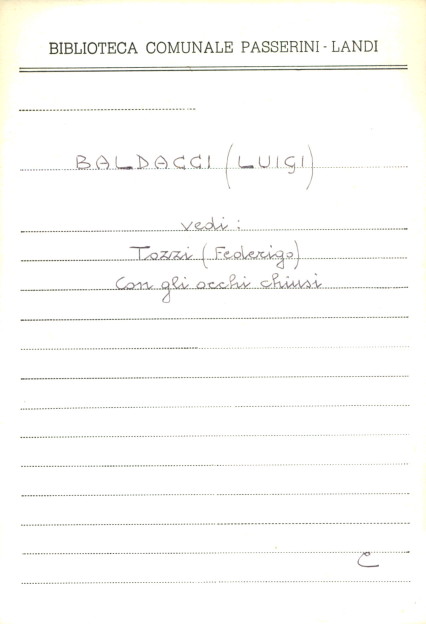 BIBLIOTECA COMUNALE PASSERINI - LANDI
BALDACCI (LUIGI)
vedi:
Tozzi (Federigo)
Con gli occhi chiusi
C